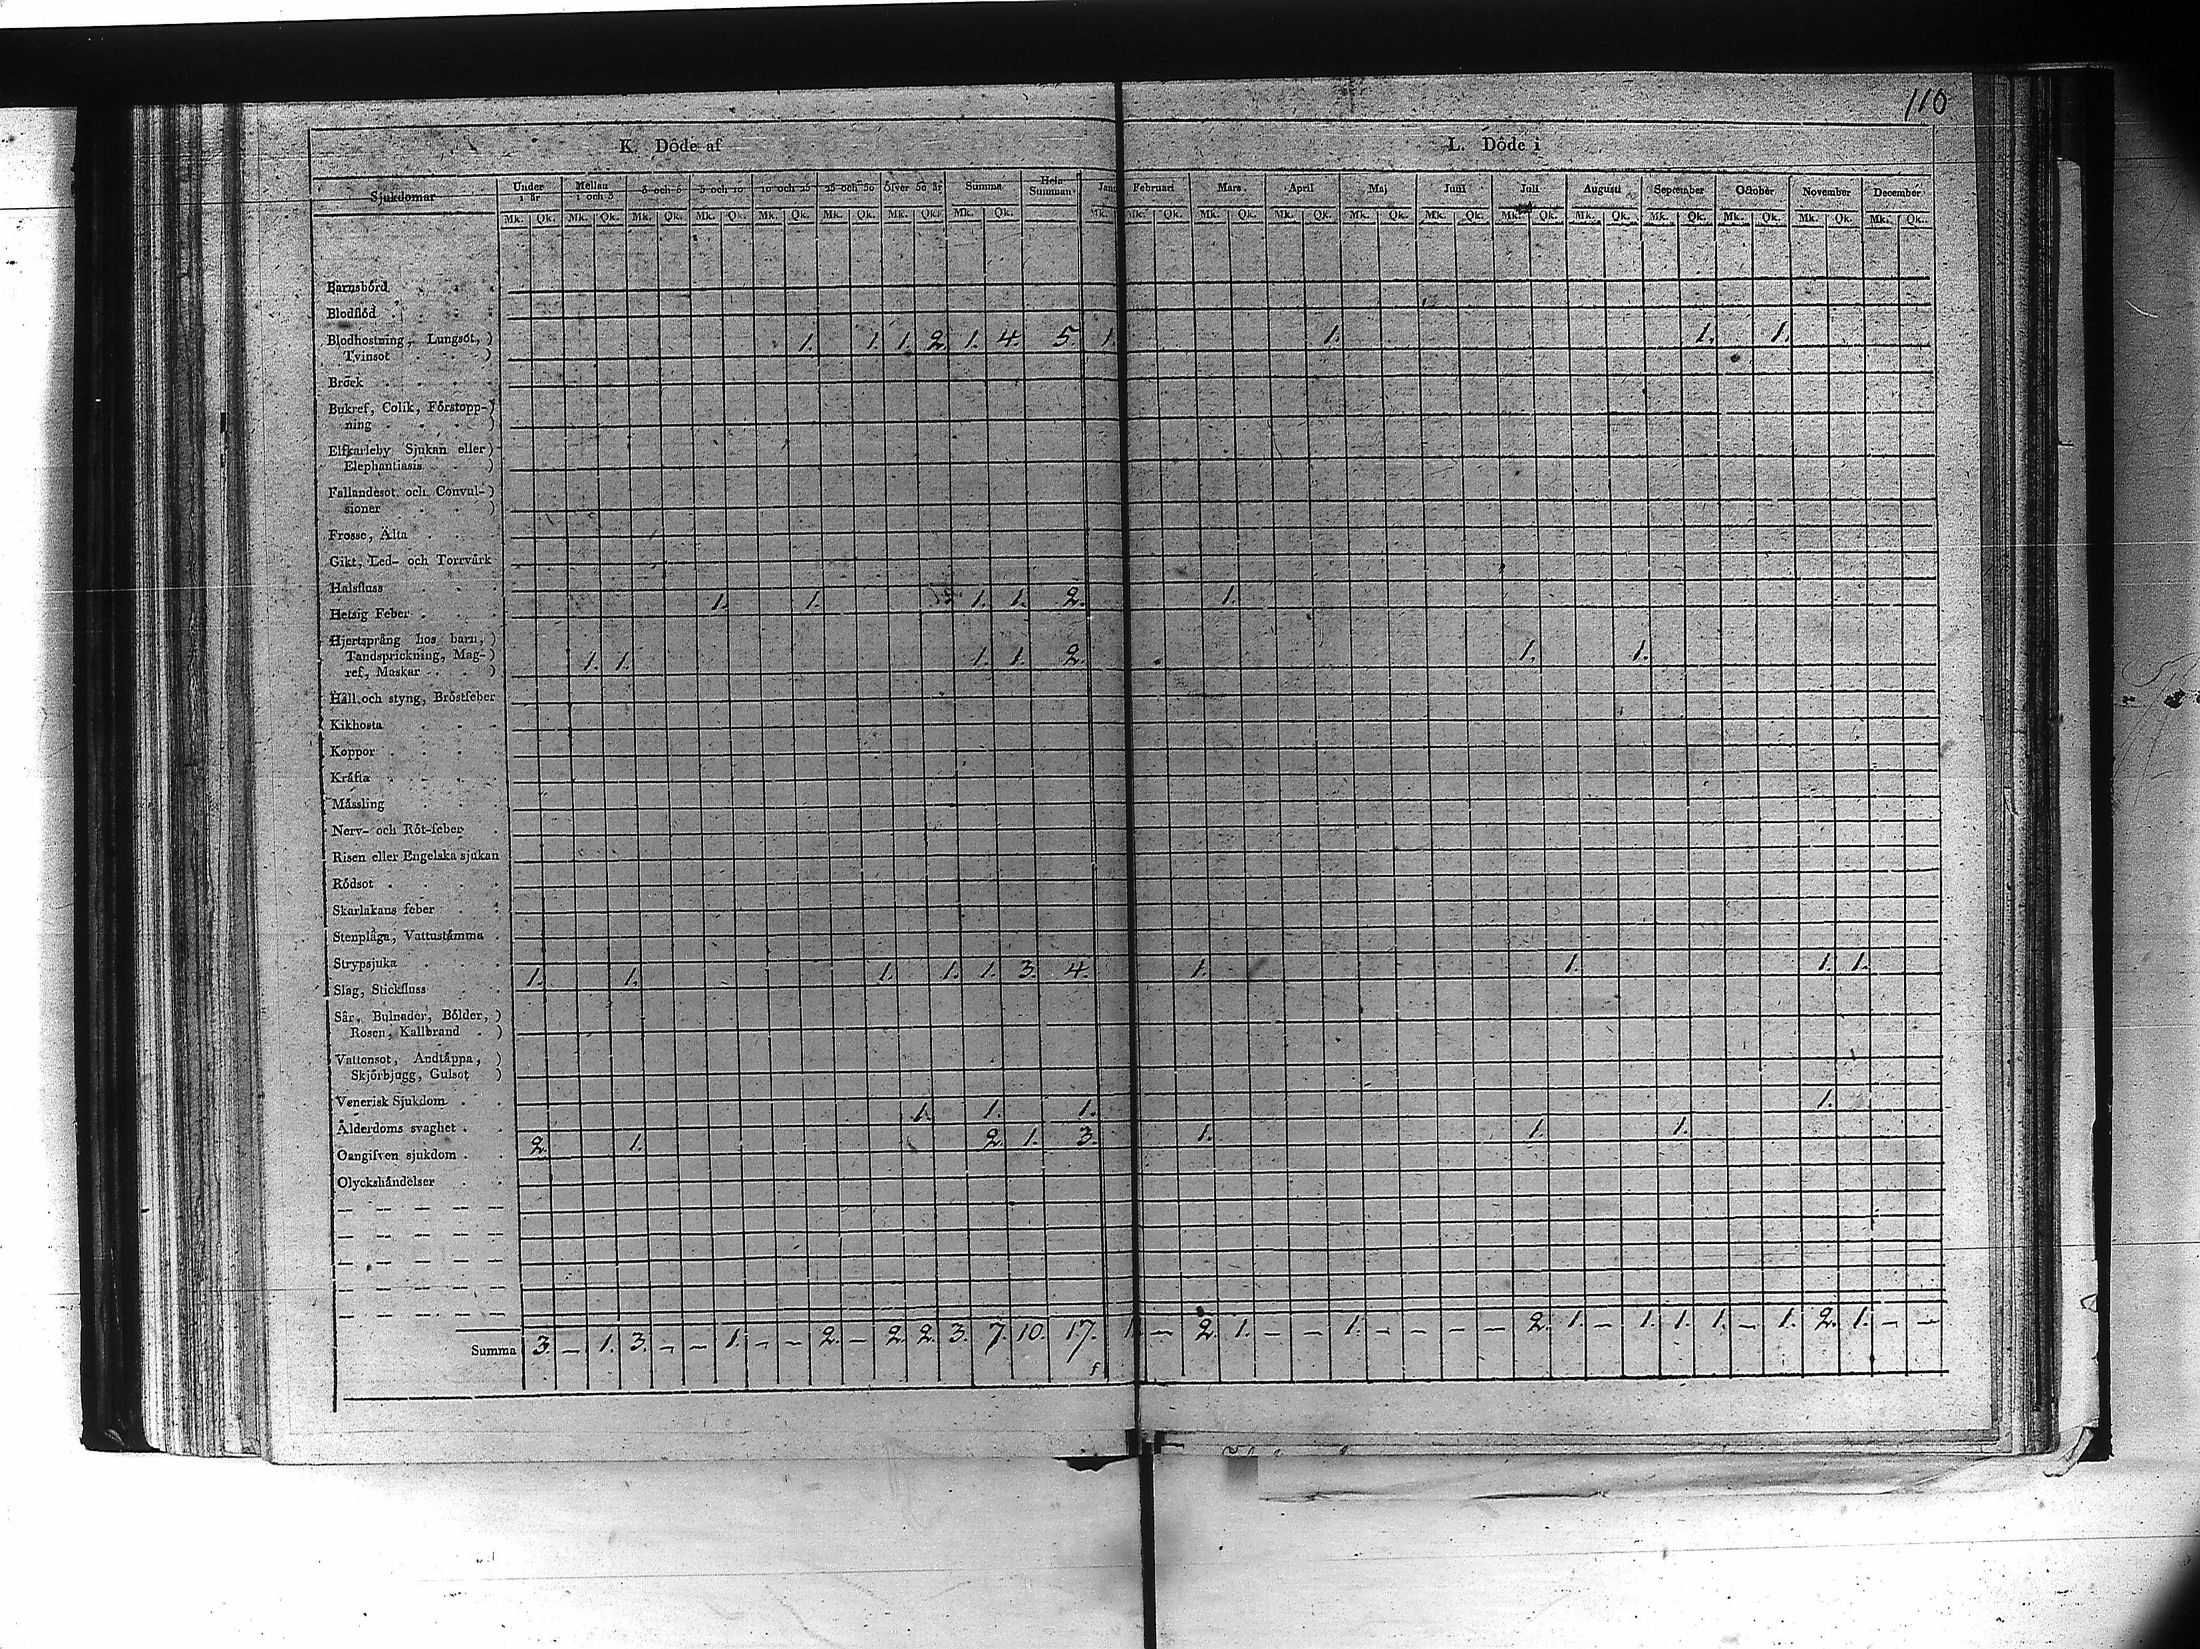 110
K. Döde af
L. Döde i
Sjukdomar Under 1 år Mellan 1 och 3 3 och 5 5 och 10 10 och 25 25 och 50 öfver 50 år Summa Hela Summan Februari Mars April Maj Junii Julii Augusti September October November December
Mk. Qk. Mk. Qk. Mk. Qk. Mk. Qk. Mk. Qk. Mk. Qk. Mk. Qk. Mk. Qk. Mk. Mk. Qk. Mk. Qk. Mk. Qk. Mk. Qk. Mk. Qk. Mk. Qk. Mk. Qk. Mk. Qk. Mk. Qk. Mk. Qk. Mk. Qk.
Barnsbörd
Blodflöd
Blodhostning, Lungsot, 1. 1. 1. 2. 1. 4. 5. 1. 1. 1. 1.
Tvinsot
Bråck
Bukref, Colik, Förstopp-
ning
Elfkarleby Sjukan eller
Elephantiasis
Fallandesot och Convul-
sioner
Frosse, Älta
Gikt, Led- och Torrvärk
Halsfluss
1. 1. 1. 1. 2. 1.
Hetsig Feber
Hjertsprång hos barn,
Tandsprickning, Mag- 1. 1. 1. 1. 2. 1. 1.
ref, Maskar
Håll och styng, Bröstfeber
Kikhosta
Koppor
Kräfta
Mässling
Nerv- och Röt-feber
Risen eller Engelska sjukan
Rödsot
Skarlakans feber
Stenplåga, Vattustämma
Strypsjuka
1. 1. 1. 1. 1. 3. 4. 1. 1. 1. 1.
Slag, Stickfluss
Sår, Bulnader, Bölder,
Rosen, Kallbrand
Vattensot, Andtäppa,
Skjörbjugg, Gulsot
Venerisk Sjukdom
1. 1. 1. 1.
Ålderdoms svaghet
2. 1. 2. 1. 3. 1. 1. 1.
Oangifven sjukdom
Olyckshändelser
Summa 3. – 1. 3. – – 1. – – 2. – 2. 2. 3. 7. 10. 17. 1. – 2. 1. – – 1. – – – – 2. 1. – 1. 1. 1. – 1. 2. 1. – –